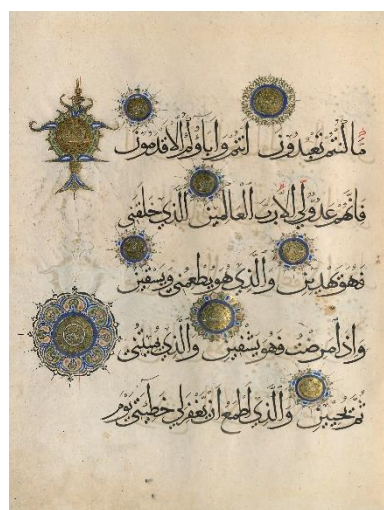 ما كنتم تعبدون انتم واباؤكم الاقدمون
فانهم عدو لي الا رب العالمين الذي خلقني
فهو يهدين والذي هو يطعمني ويسقين
واذا مرضت فهو يشفين والذي يميتني
ثم يحيين والذي اطمع ان يغفر لي خطيئتي يوم